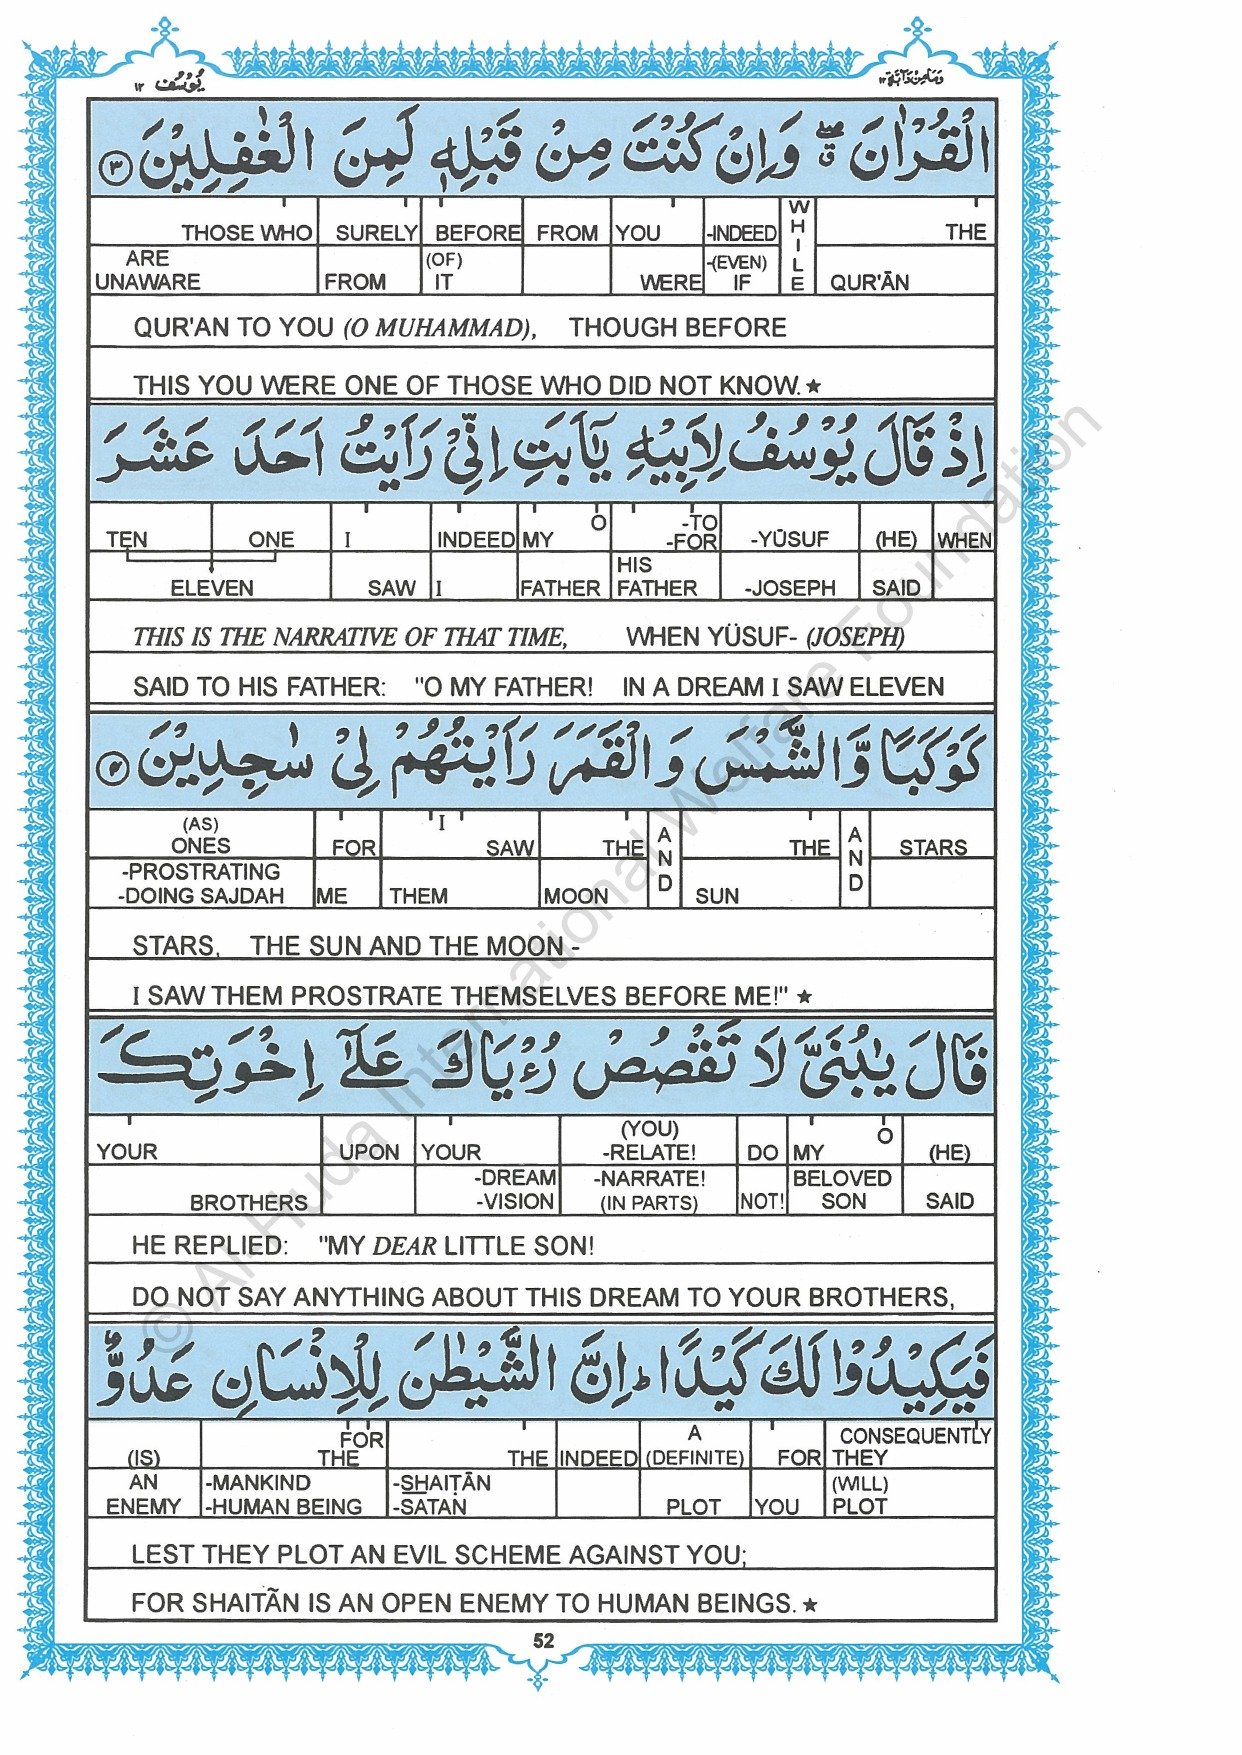 يُوسُف ١٢
وَمَا مِنْ دَآبَّة ١٢
الْقُرْاٰنَ ۖق وَاِنْ كُنْتَ مِنْ قَبْلِهٖ لَمِنَ الْغٰفِلِيْنَ ۝٣
THOSE WHO SURELY BEFORE FROM YOU -INDEED WHILE THE
ARE UNAWARE FROM (OF) IT WERE -(EVEN) IF QUR'ĀN
QUR'AN TO YOU (O MUHAMMAD), THOUGH BEFORE
THIS YOU WERE ONE OF THOSE WHO DID NOT KNOW. ★
اِذْ قَالَ يُوْسُفُ لِاَبِيْهِ يٰٓاَبَتِ اِنِّيْ رَاَيْتُ اَحَدَ عَشَرَ
TEN ONE I INDEED MY O -TO -FOR -YŪSUF (HE) WHEN
ELEVEN SAW I FATHER HIS FATHER -JOSEPH SAID
THIS IS THE NARRATIVE OF THAT TIME, WHEN YÜSUF- (JOSEPH)
SAID TO HIS FATHER: "O MY FATHER! IN A DREAM I SAW ELEVEN
كَوْكَبًا وَّالشَّمْسَ وَالْقَمَرَ رَاَيْتُهُمْ لِيْ سٰجِدِيْنَ ۝٤
(AS) ONES FOR I SAW THE AND THE AND STARS
-PROSTRATING -DOING SAJDAH ME THEM MOON SUN
STARS, THE SUN AND THE MOON -
I SAW THEM PROSTRATE THEMSELVES BEFORE ME!" ★
قَالَ يٰبُنَيَّ لَا تَقْصُصْ رُءْيَاكَ عَلٰٓى اِخْوَتِكَ
YOUR UPON YOUR (YOU) -RELATE! DO MY O (HE)
BROTHERS -DREAM -VISION -NARRATE! (IN PARTS) NOT! BELOVED SON SAID
HE REPLIED: "MY DEAR LITTLE SON!
DO NOT SAY ANYTHING ABOUT THIS DREAM TO YOUR BROTHERS,
فَيَكِيْدُوْا لَكَ كَيْدًا ؕ اِنَّ الشَّيْطٰنَ لِلْاِنْسَانِ عَدُوٌّ
(IS) FOR THE THE INDEED A (DEFINITE) FOR CONSEQUENTLY THEY
AN ENEMY -MANKIND -HUMAN BEING -SHAIṬĀN -SATAN PLOT YOU (WILL) PLOT
LEST THEY PLOT AN EVIL SCHEME AGAINST YOU;
FOR SHAITÃN IS AN OPEN ENEMY TO HUMAN BEINGS. ★
52
© Al-Huda International Welfare Foundation